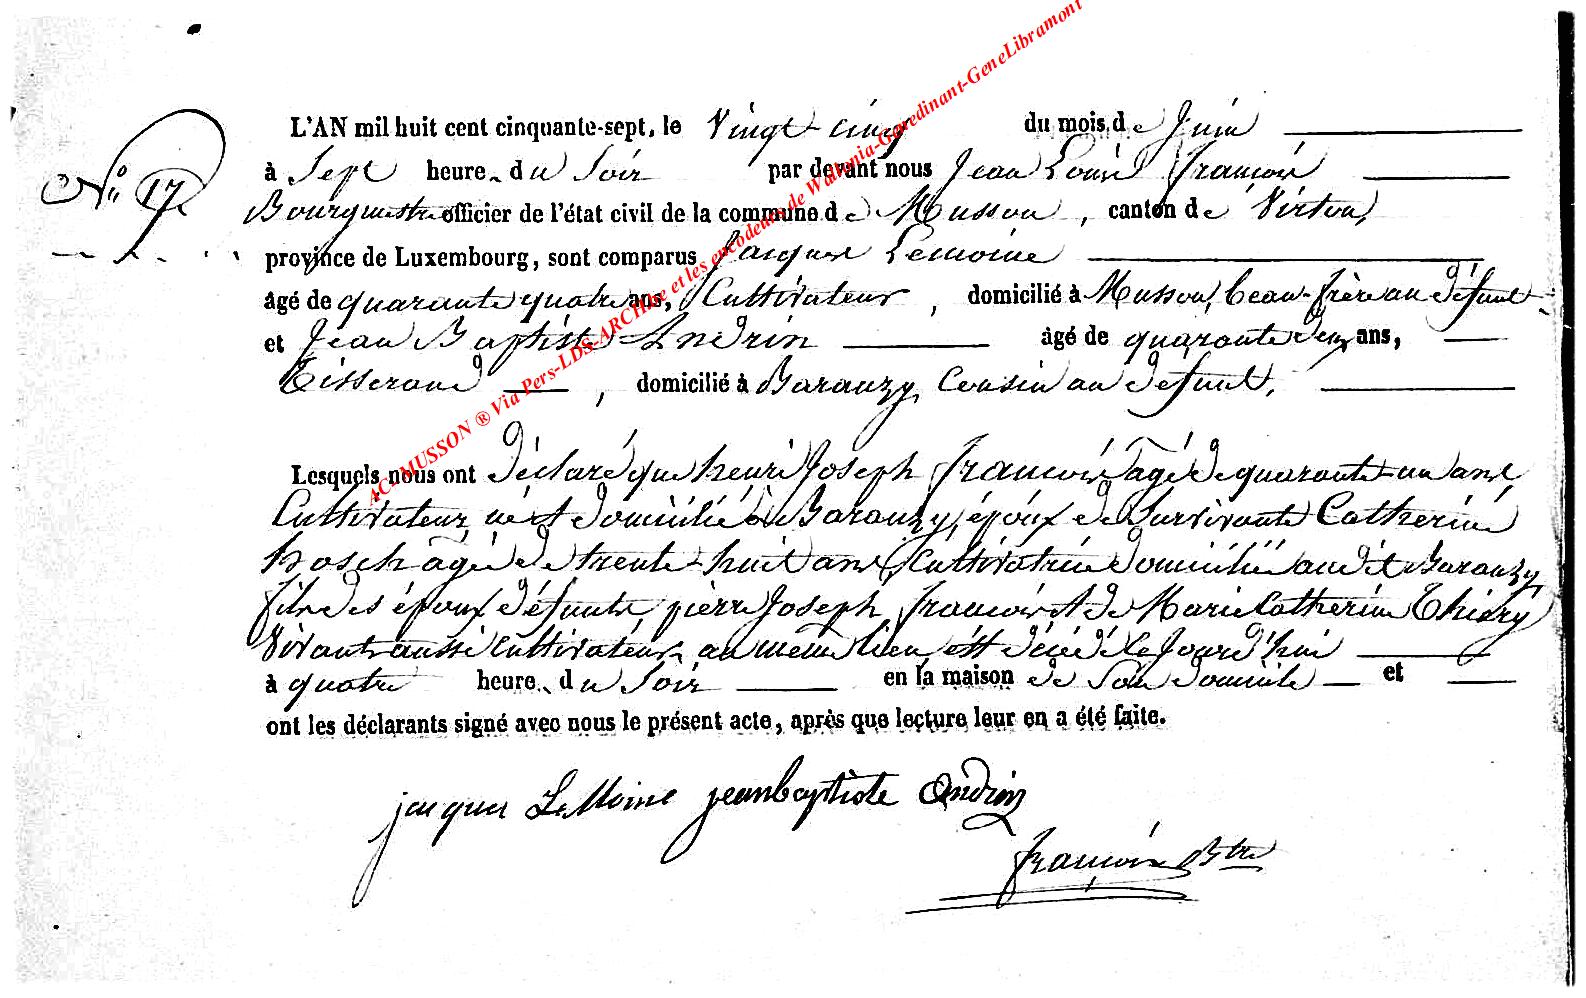 L'AN mil huit cent cinquante-sept, le Vingt-cinq du mois de Juin
N° 17 à Sept heures du Soir par devant nous Jean Louis françois
Bourgmestre officier de l'état civil de la commune de Musson, canton de Virton,
province de Luxembourg, sont comparus Jacques Lemoine
âgé de quarante quatre ans, Cultivateur, domicilié à Musson, beau-frère au défunt
et Jean Baptiste Andrin âgé de quarante deux ans,
Tisserand, domicilié à Baranzy, Cousin au défunt,
Lesquels nous ont déclaré que henri Joseph françois âgé de quarante un ans
Cultivateur, né et domicilié à Baranzy, époux de Survivante Catherine
hosch âgé de trente-huit ans, Cultivatrice domiciliée audit Baranzy,
fils des époux défunts, pierre Joseph françois et de Marie Catherine Thiéry
Vivant aussi Cultivateurs au même lieu, est décédé le Jourd'hui
à quatre heures du Soir en la maison de Son domicile et
ont les déclarants signé avec nous le présent acte, après que lecture leur en a été faite.
jacques LeMoine jeanbaptiste Andrin
françois Btre
AC-MUSSON ® Via Pers-LDS-ARCHive et les encodeurs de Wallonia-Genedinant-GeneLibramont